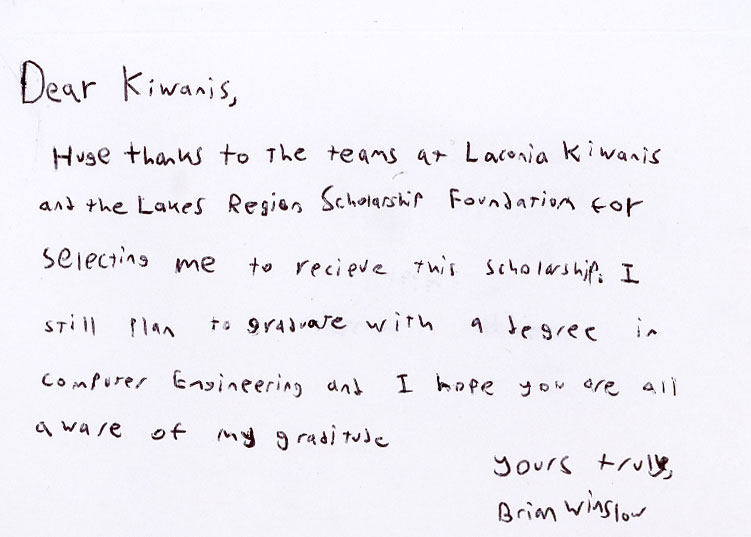 Dear Kiwanis,
Huge thanks to The teams at Laconia Kiwanis
and the Lakes Region Scholarship Foundation for
selecting me to recieve this scholarship. I
still plan to graduate with a degree in
Computer Engineering and I hope you are all
aware of my graditude
yours truly,
Brian Winslow